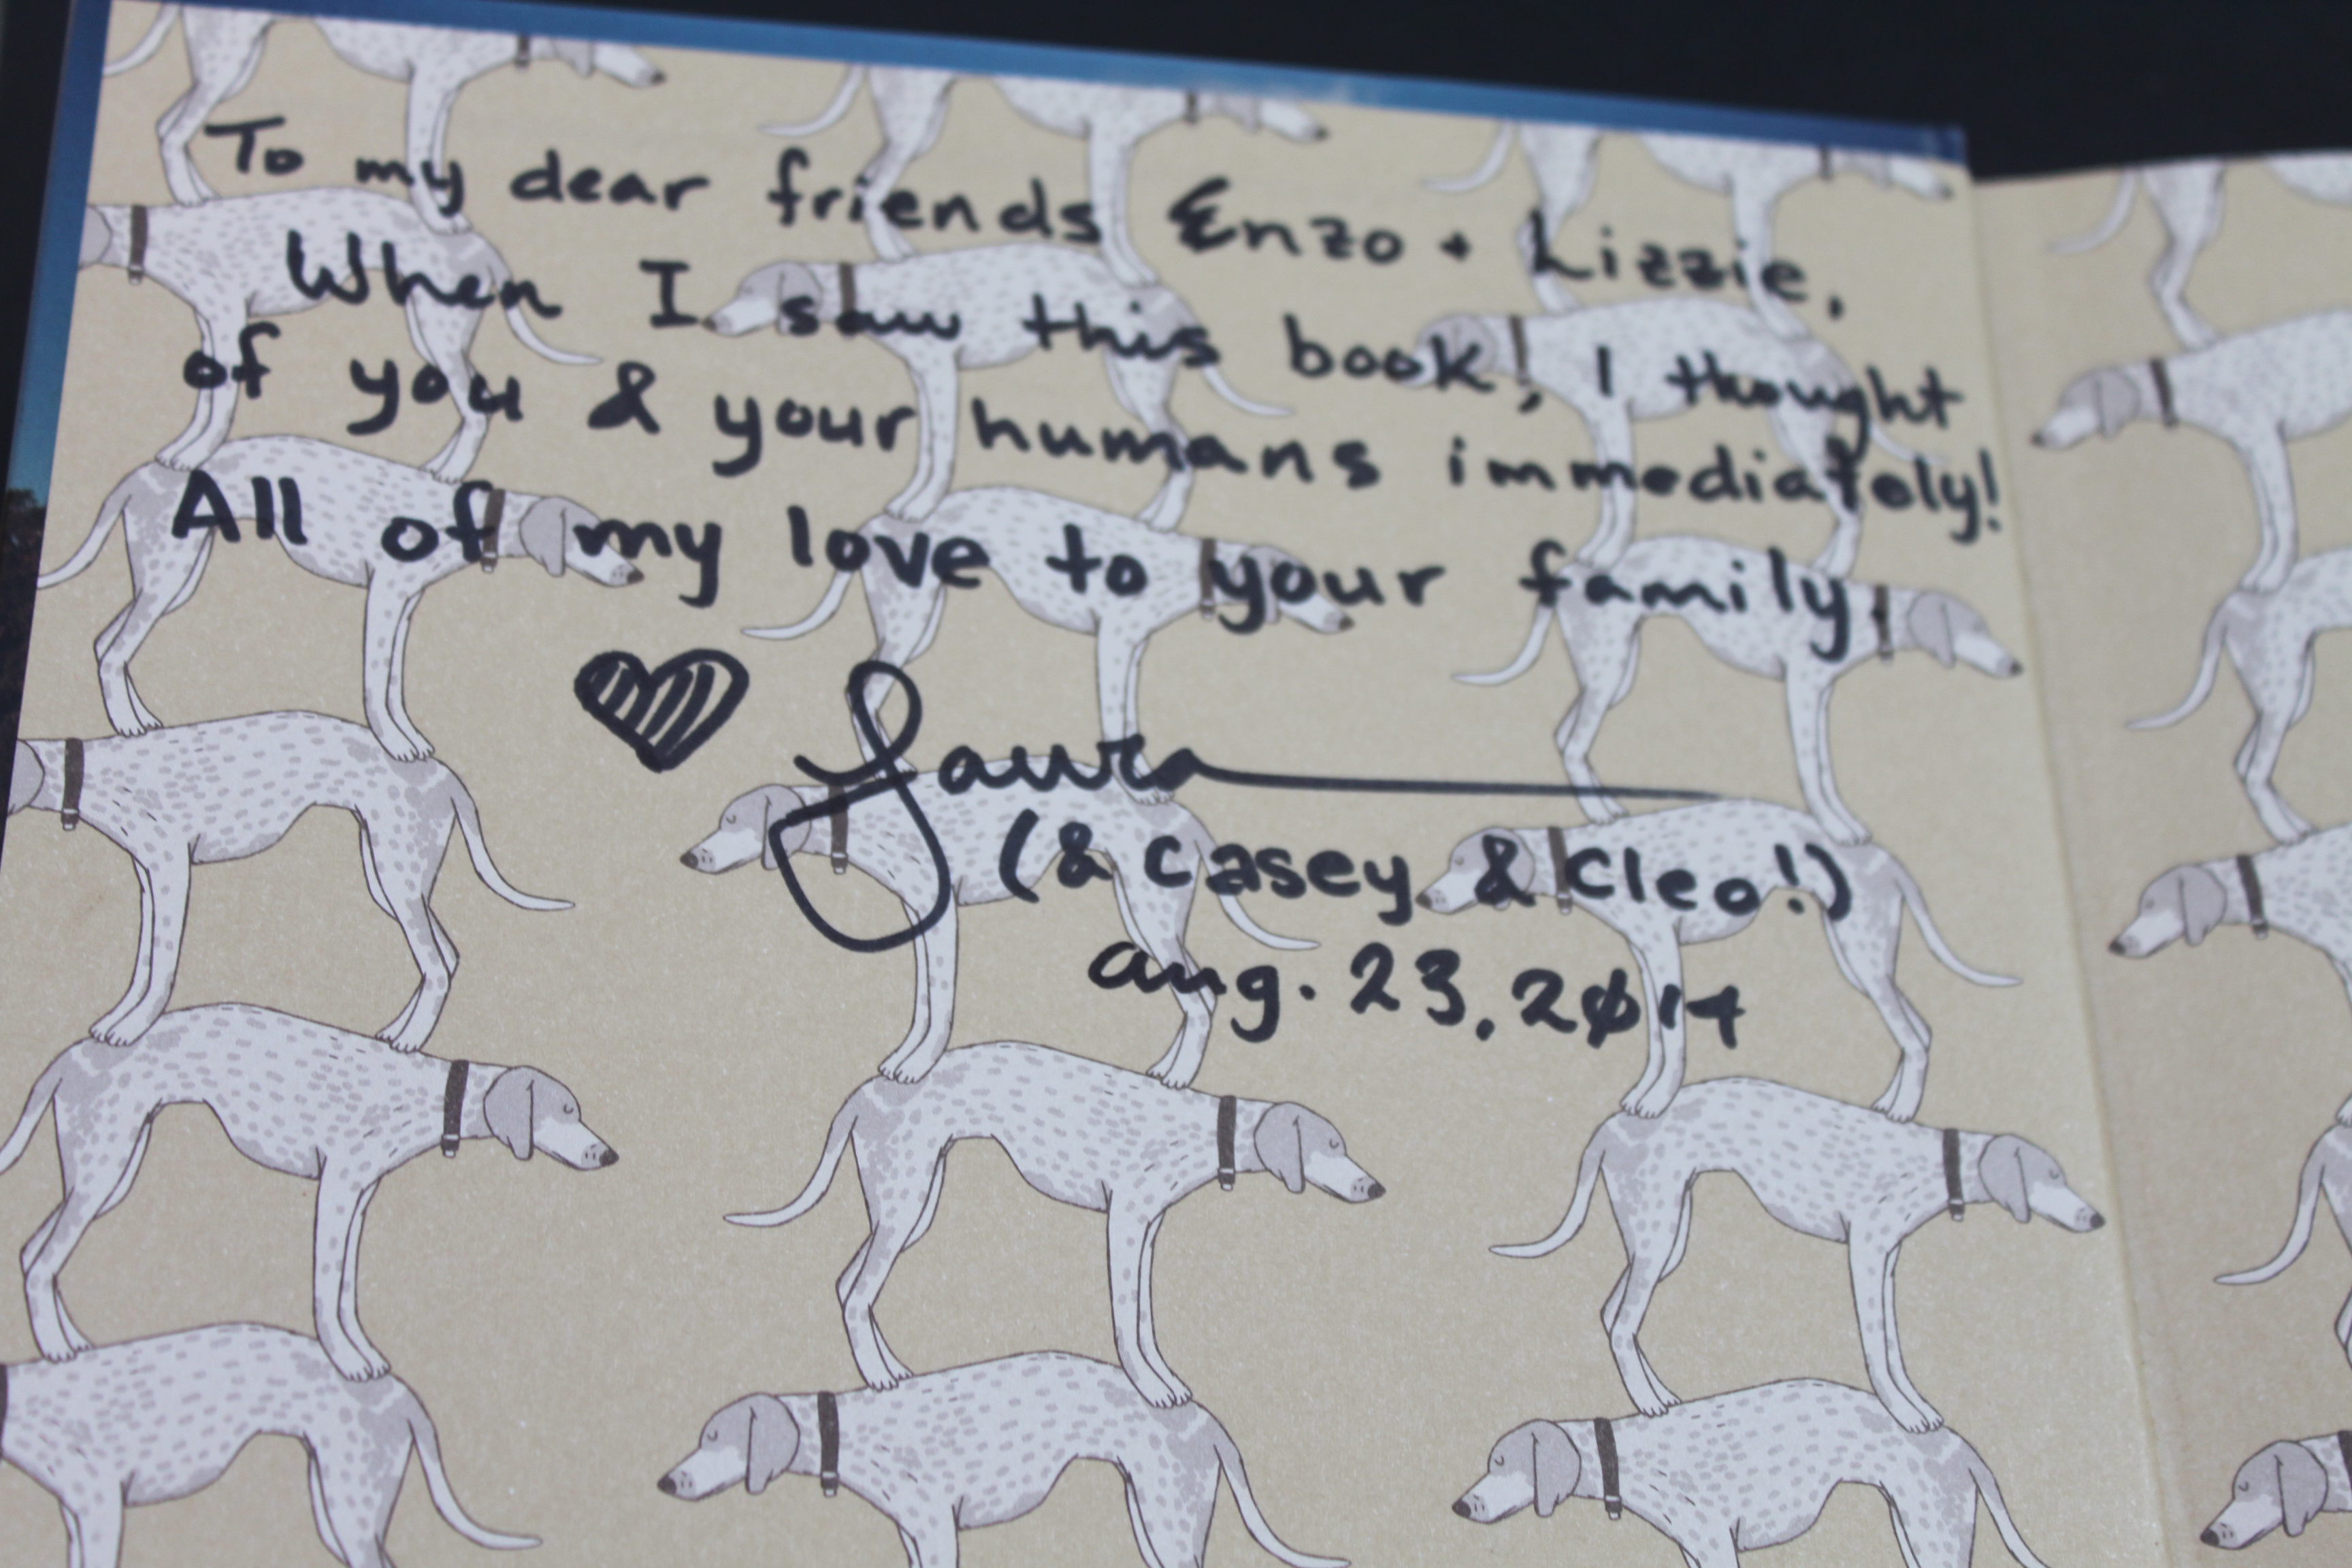 To my dear friends Enzo + Lizzie,
When I saw this book, I thought
of you & your humans immediately!
All of my love to your family.
Laura
(& Casey & Cleo!)
aug. 23, 2014